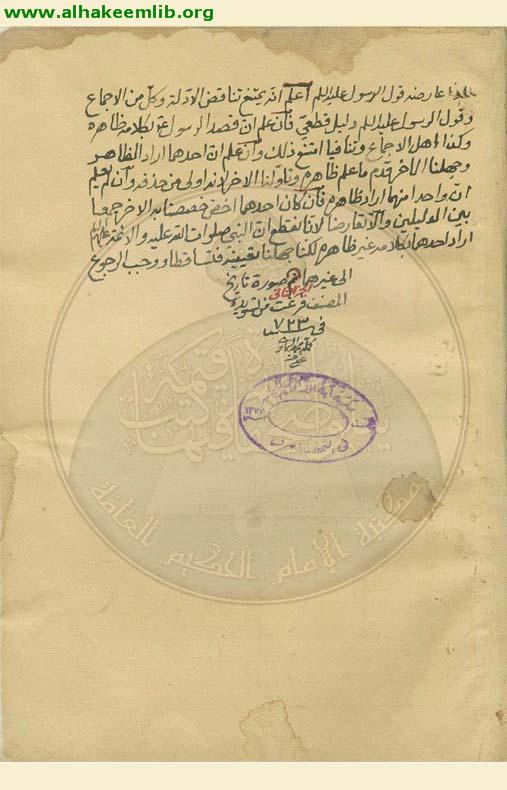 www.alhakeemlib.org
عارضه قول الرسول عليه السلم أعلم انه يمتنع تناقض الادلة وكل من الاجماع
وقول الرسول عليه السلم دليل قطعي فان علم ان قصد الرسول بكلامه ظاهره
وكذا اهل الاجماع وتنافيا امتنع ذلك وان علم ان احدهما اراد الظاهر
وجهلنا الاخر قدم ما علم ظاهره وتأولنا الاخر لانه اولى من حذفه وان لم يعلم
ان واحدا منهما اراد ظاهره فان كان احدهما اخص خصصنا به الاخر جمعا
بين الدليلين والا تعارضا لانا نقطع ان النبي صلوات الله عليه والامة
اراد احدهما بكلامه غير ظاهره لكنا جهلنا تعيينه فتساقطا ووجب الرجوع
الى غيرهما صورة تاريخ
الجزء الثاني
المصنف فرغت من تسويده
في
٧٢٣
مكتبة الإمام الحكيم العامة
فيها كتب قيمة